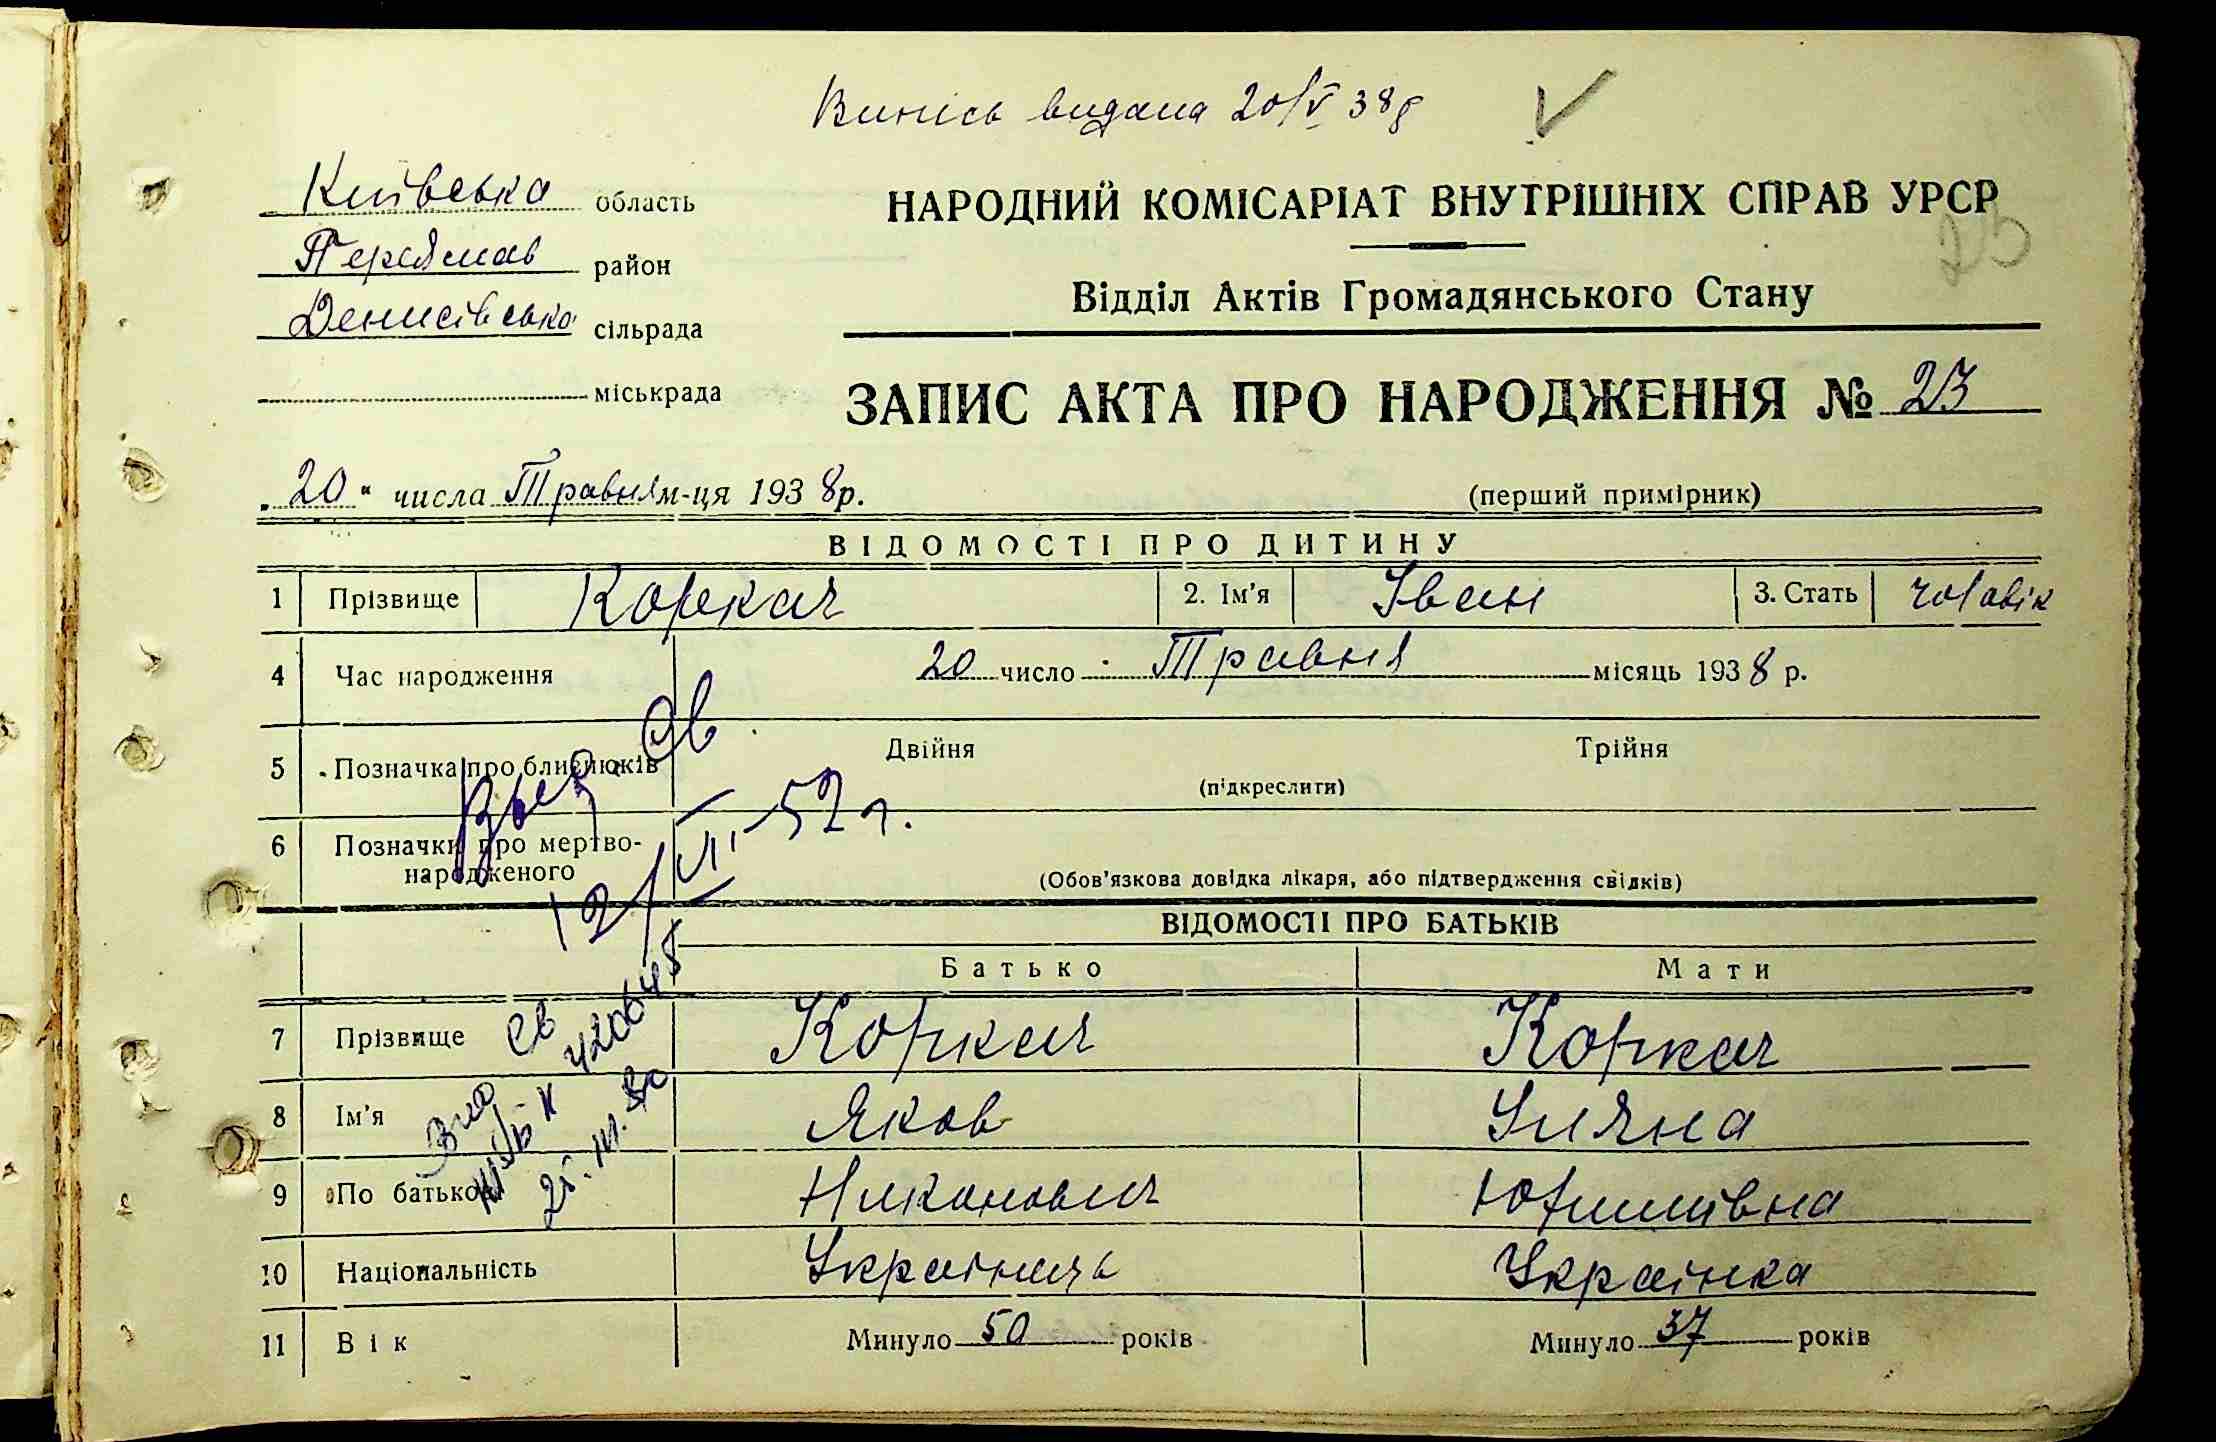 Випись видана 20/V 38 р
Київська область
Переяслав район
Денисівська сільрада
міськрада
НАРОДНИЙ КОМІСАРІАТ ВНУТРІШНІХ СПРАВ УРСР
23
Відділ Актів Громадянського Стану
ЗАПИС АКТА ПРО НАРОДЖЕННЯ № 23
"20" числа Травня м-ця 1938 р.
(перший примірник)
ВІДОМОСТІ ПРО ДИТИНУ
1 Прізвище Коркач 2. Ім'я Іван 3. Стать чоловік
4 Час народження 20 число Травня місяць 1938 р.
5 Позначка про близнюків Двійня Трійня
(підкреслити)
6 Позначки про мертво-
народженого
(Обов'язкова довідка лікаря, або підтвердження свідків)
Выд. св.
12/VI 52 г.
ВІДОМОСТІ ПРО БАТЬКІВ
Батько Мати
7 Прізвище Коркач Коркач
8 Ім'я Яков Уляна
9 По батькові Никонович
10 Національність Українець Українка
11 Вік Минуло 50 років Минуло 37 років
св
420648